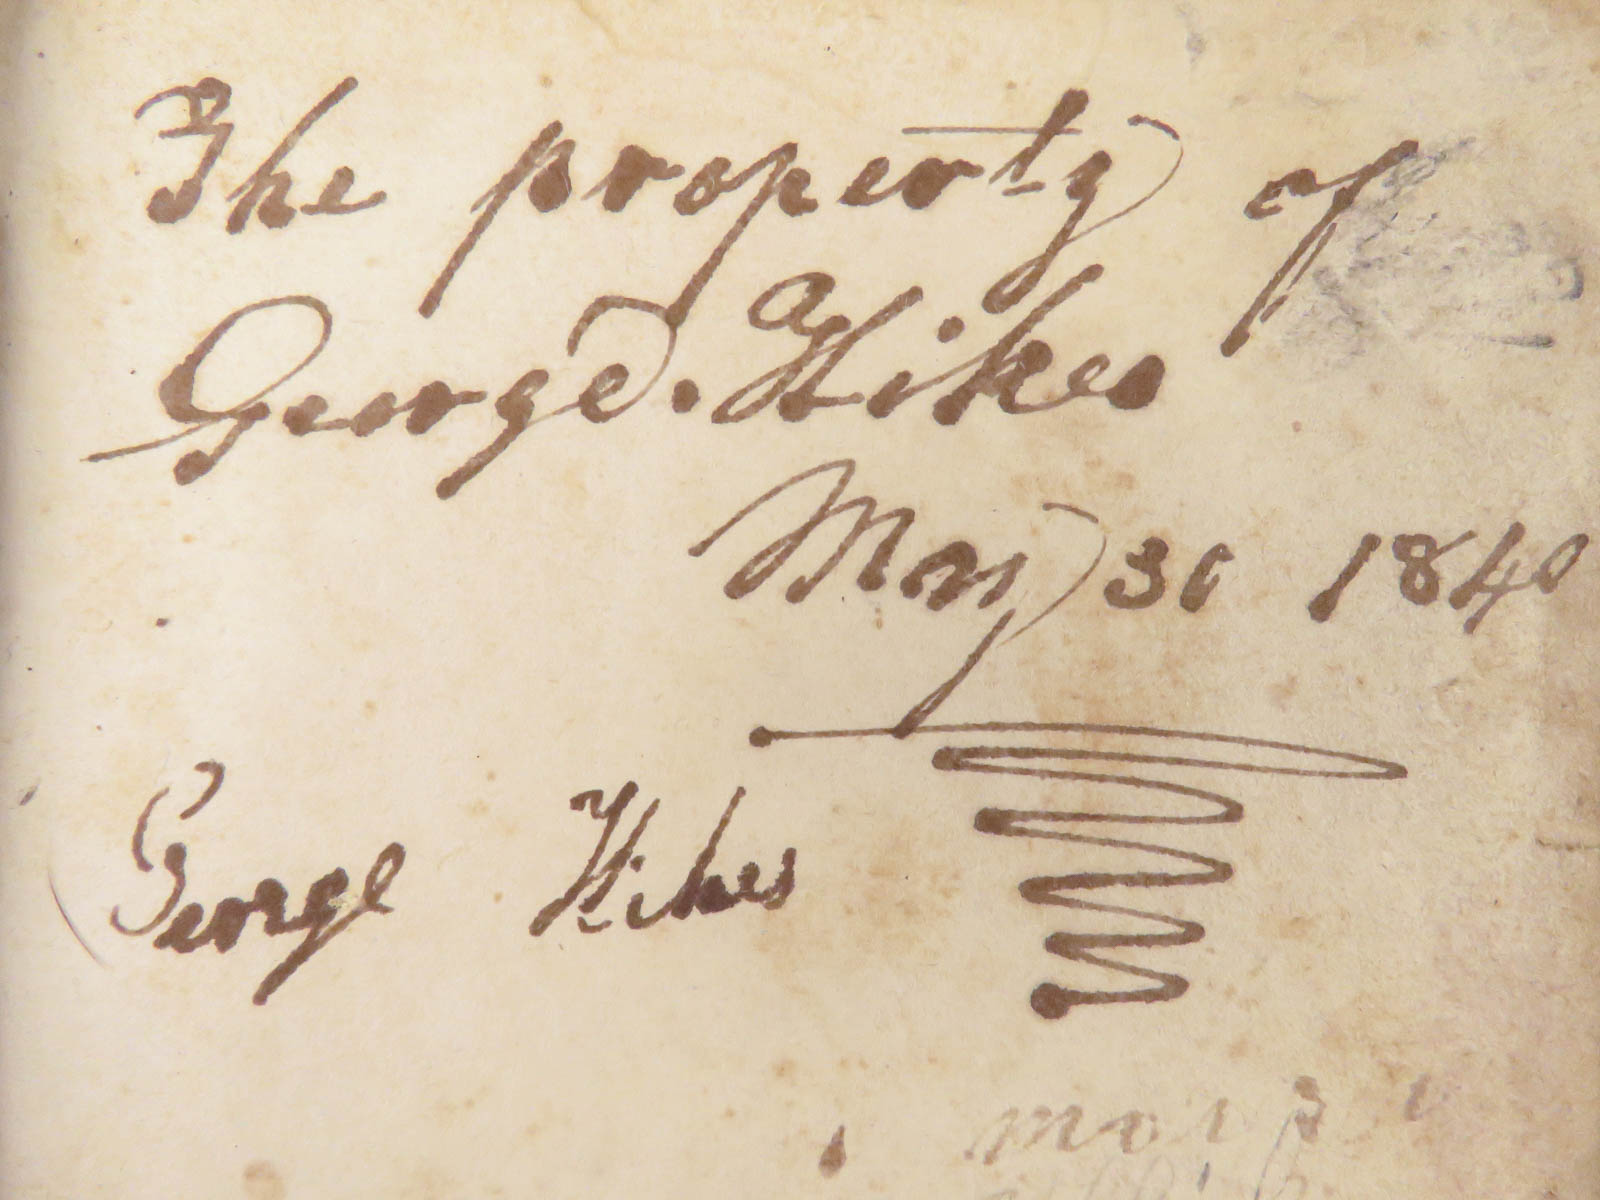 The property of
George. Hikes
May 30 1840
George Hikes